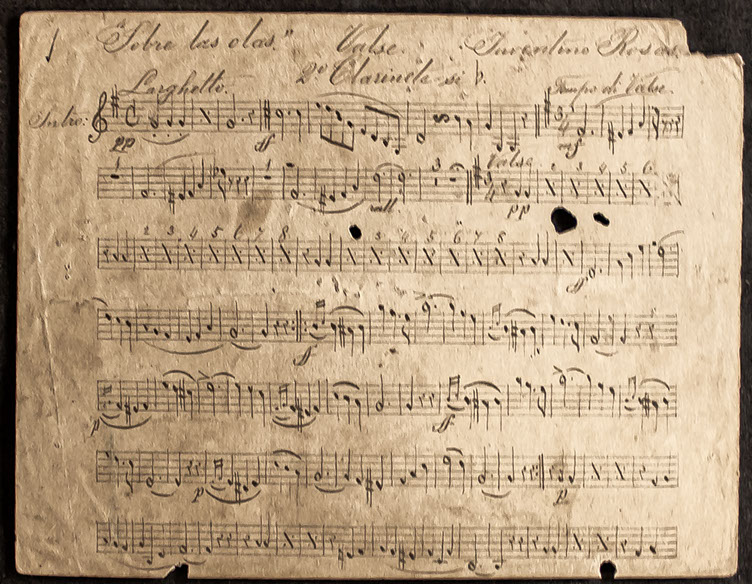 "Sobre las olas." Valse. Juventino Rosas.
Larghetto. 2º Clarinete si b. Tempo di Valse.
Intro: C 3/4
pp ff mf
1 1 3 Valse 3/4 2 3 4 5 6
rall. pp
2 3 4 5 6 7 8 2 3 4 5 6 7 8
ff
ff
p ff
p p